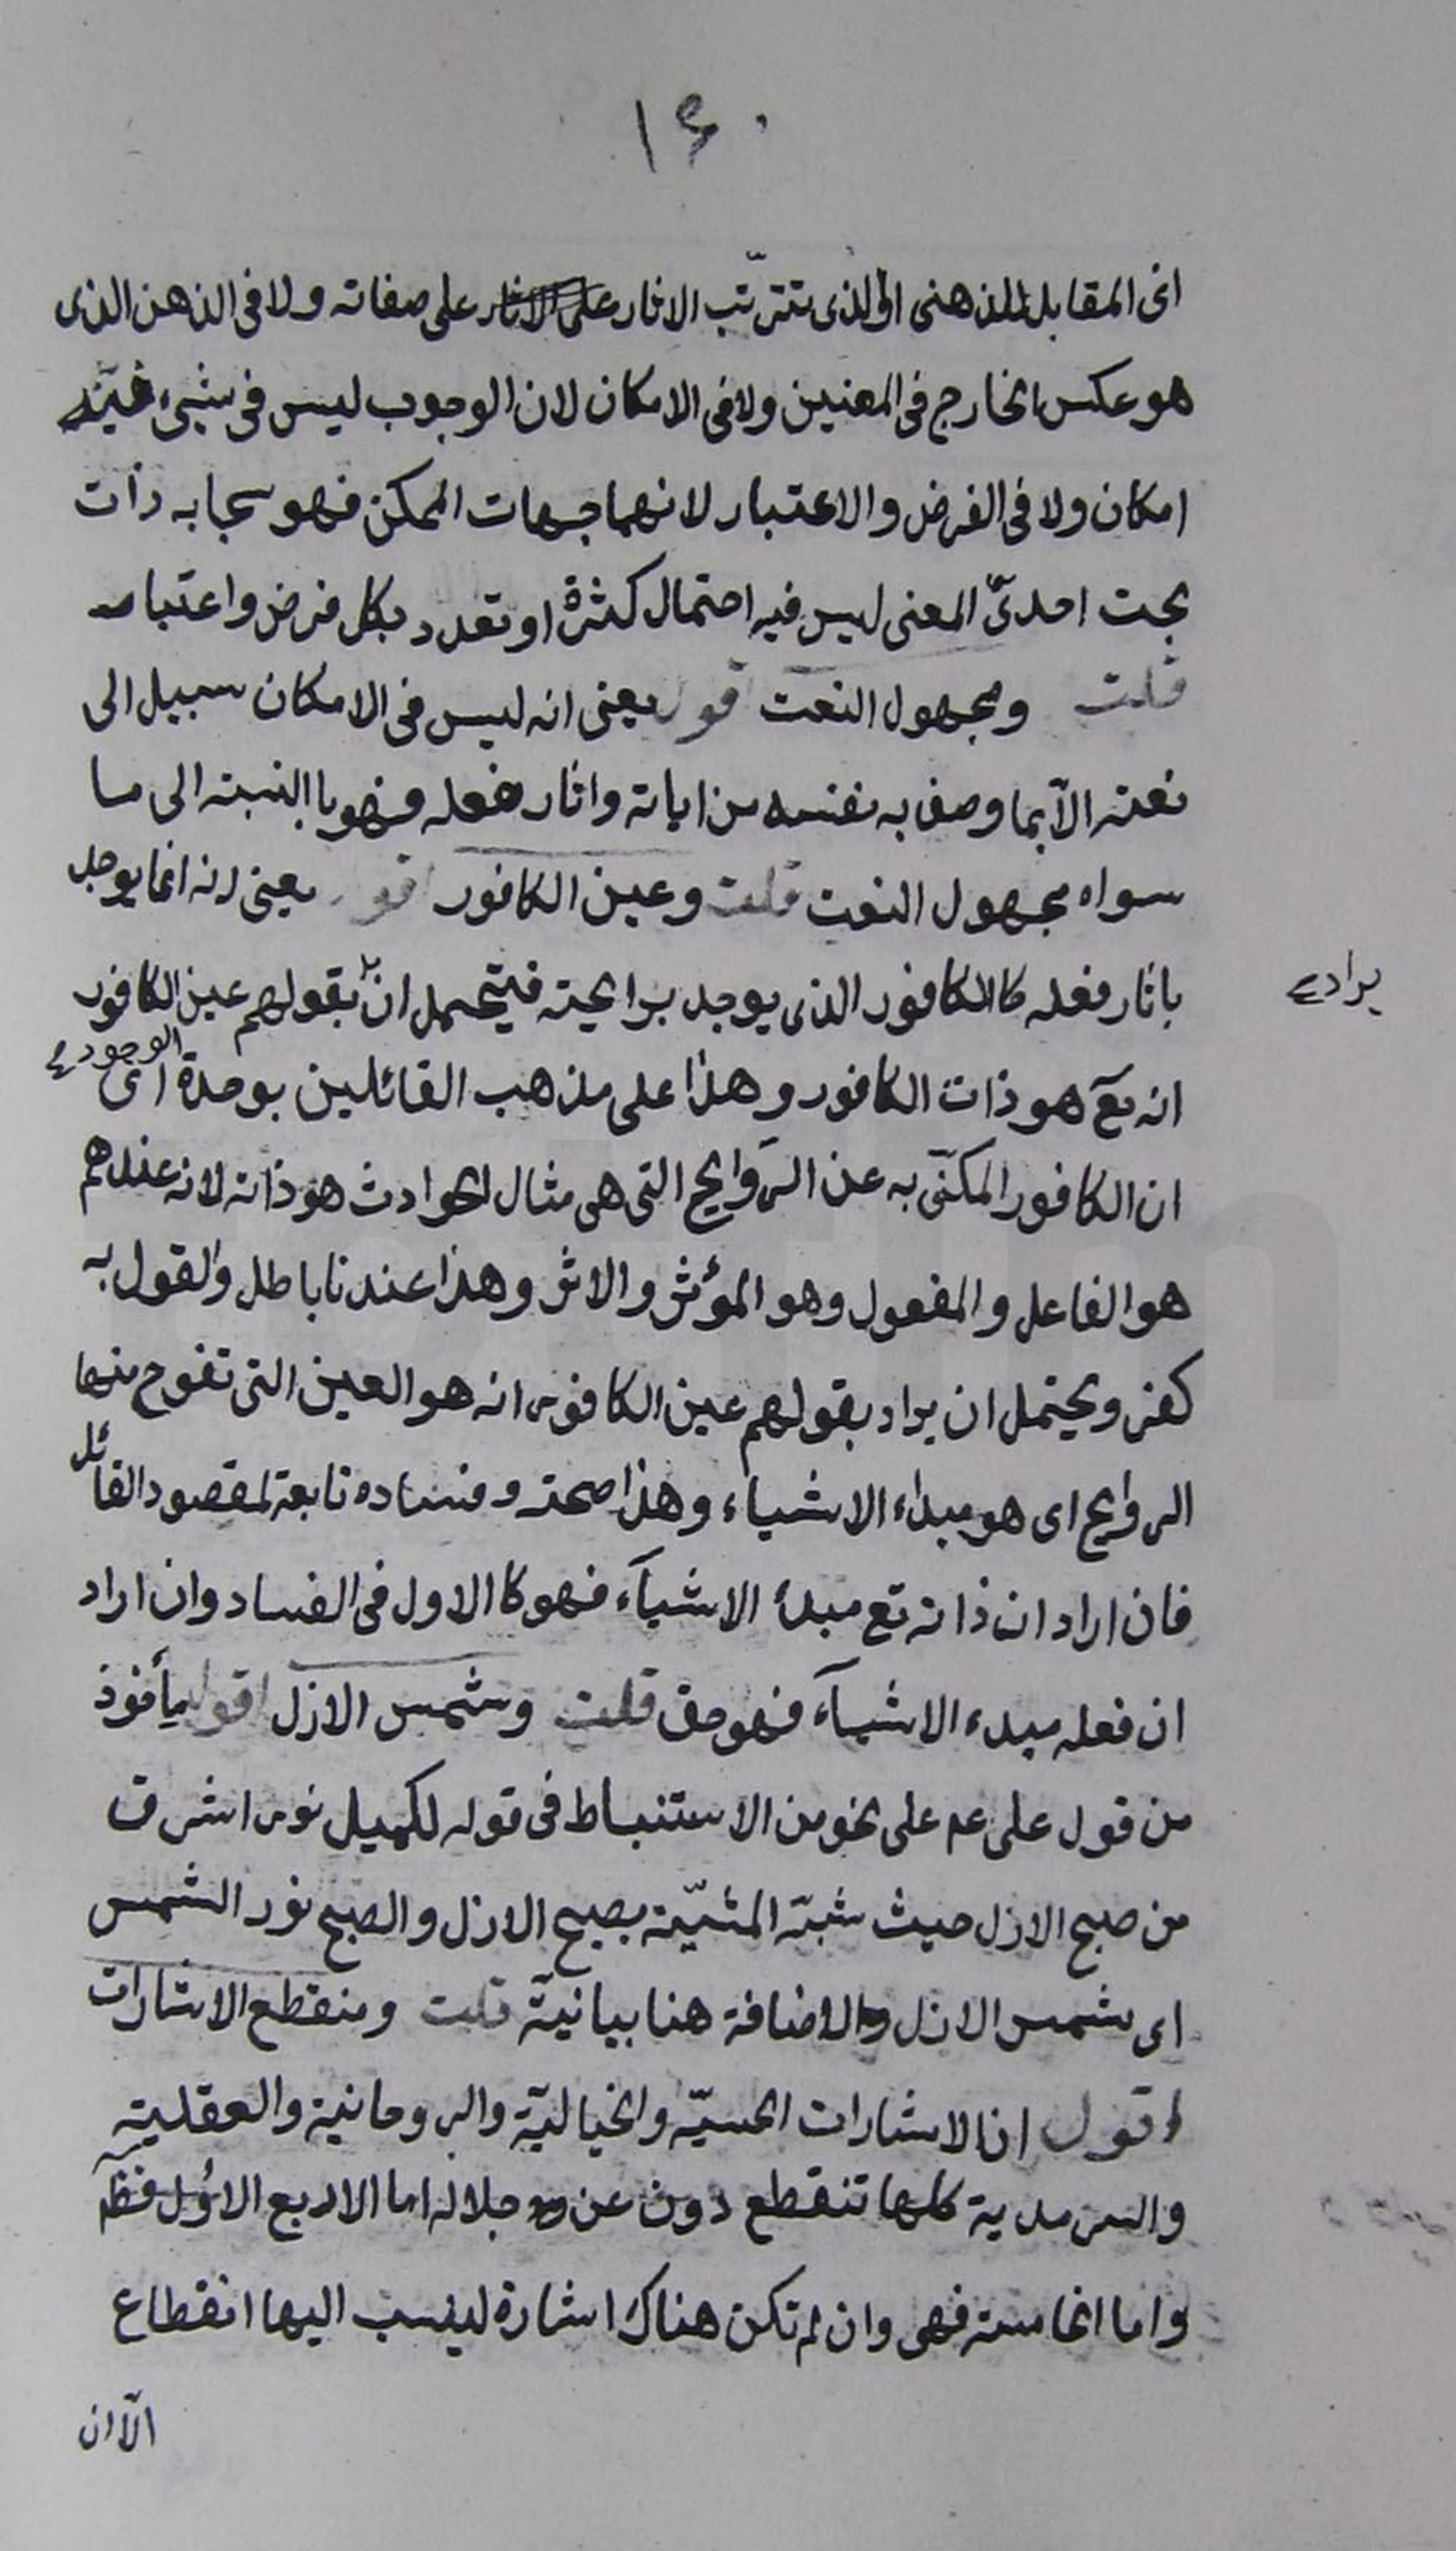 ١۶٠
اى المقابل للذهنى او الذى تترتّب الاثار على الاثار على صفاته ولا فى الذهن الذى
هو عكس الخارج فى المعنيين ولا فى الامكان لان الوجوب ليس فى شيىء فيه
امكان ولا فى الفرض والاعتبار لانهما جهات الممكن فهو سبحانه ذات
بحت احدىّ المعنى ليس فيه احتمال كثرة او تعدد بكل فرض واعتبار
قلت ومجهول النعت اقول يعنى انه ليس فى الامكان سبيل الى
نعته الّا بما وصف به نفسه من اياته واثار فعله فهو باالنسبة الى ما
سواه مجهول النعت قلت وعين الكافور اقول يعنى انه انما يوجد
باثار فعله كالكافور الذى يوجد برايحته فيتحمل ان بقولهم عين الكافور
يراد
انه تعَ هو ذات الكافور وهذا على مذهب القائلين بوحدة الوجود اى
ان الكافور المكنّى به عن الرّوايح التى هى مثال الحوادث هو ذاته لانه عندهم
هو الفاعل والمفعول وهو المؤثر والاثر وهذا عندنا باطل والقول به
كفر ويحتمل ان يراد بقولهم عين الكافور انه هو العين التى تفوح منها
الروايح اى هو مبداء الاشياء وهذا صحته وفساده تابعة لمقصود القائل
فان اراد ان ذاته تع مبدأ الاشيآء فهو كالاول فى الفساد وان اراد
ان فعله مبدء الاشيآء فهو حق قلت وشمس الازل اقول مأخوذ
من قول على عم على نحو من الاستنباط فى قوله لكميل نور اشرق
من صبح الازل حيث شبّه المشيّة بصبح الازل والصبح نور الشمس
اى شمس الازل والاضافة هنا بيانيّة قلت ومنقطع الاشارات
اقول ان الاشارات الحسيّه والخياليّة والروحانية والعقلية
والسرمدية كلها تنقطع دون عن جلاله اما الاربع الاُول فظَ
واما الخامسة فهى وان لم تكن هناك اشارة لينسب اليها انقطاع
الّا ان